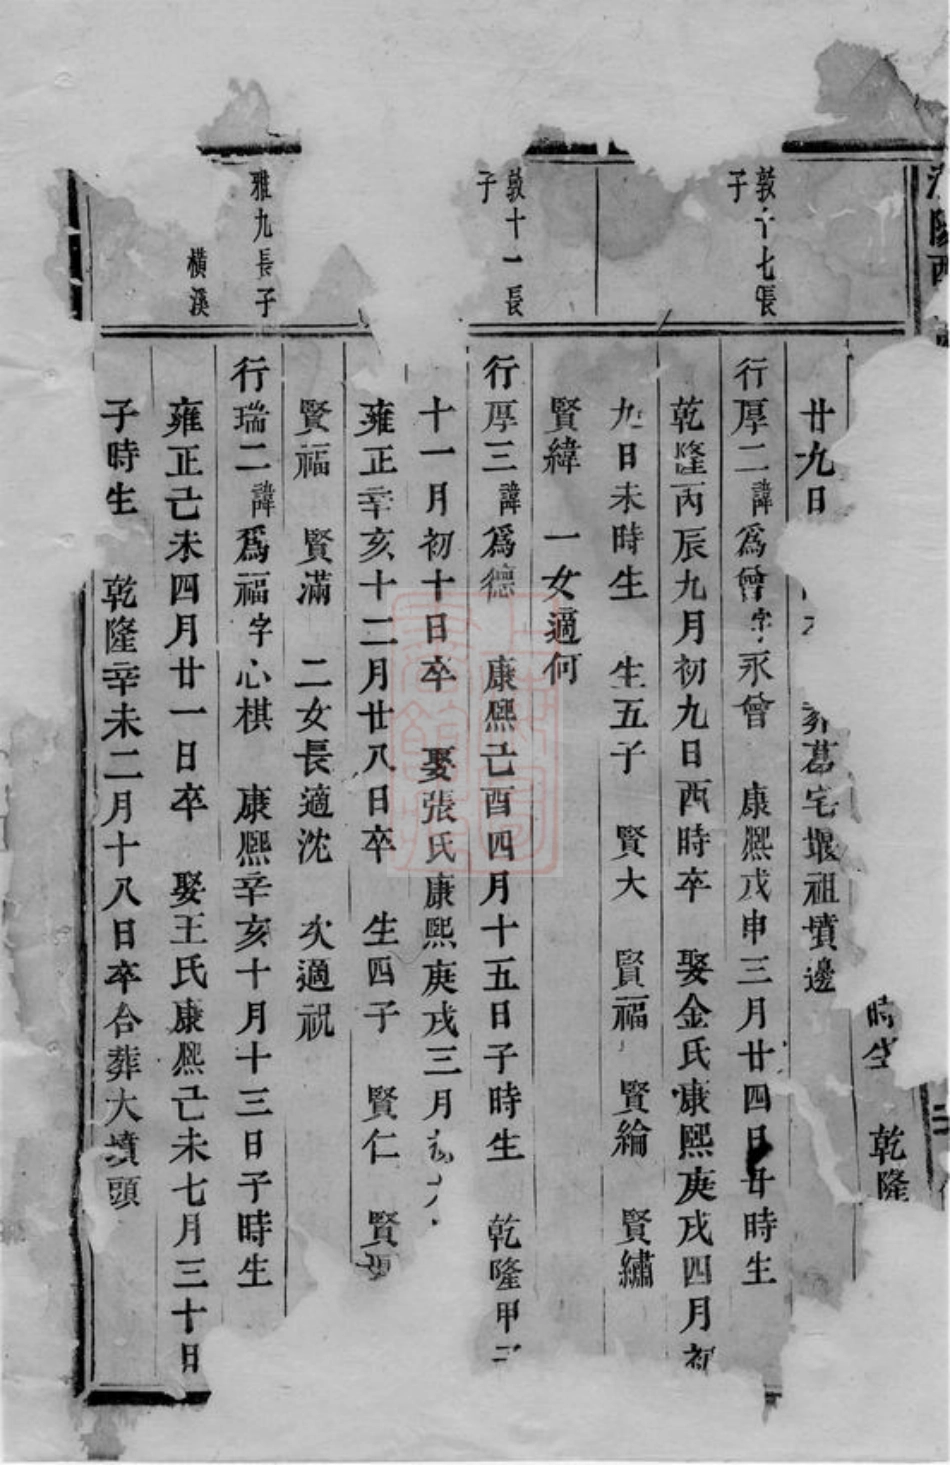 時生 乾隆
廿九日 葬葛宅堰祖墳邊
敦十七長
子
行厚二諱爲曾字永曾 康熙戊申三月廿四日丑時生
乾隆丙辰九月初九日酉時卒 娶金氏康熙庚戌四月初
九日未時生 生五子 賢大 賢福 賢綸 賢繡
賢緯 一女適何
敦十一長
子
行厚三諱爲德 康熙己酉四月十五日子時生 乾隆甲子
十一月初十日卒 娶張氏康熙庚戌三月初六
雍正辛亥十二月廿八日卒 生四子 賢仁 賢
賢福 賢滿 二女長適沈 次適祝
雅九長子
橫溪
行瑞二諱爲福字心棋 康熙辛亥十月十三日子時生
雍正己未四月廿一日卒 娶王氏康熙己未七月三十日
子時生 乾隆辛未二月十八日卒合葬大墳頭